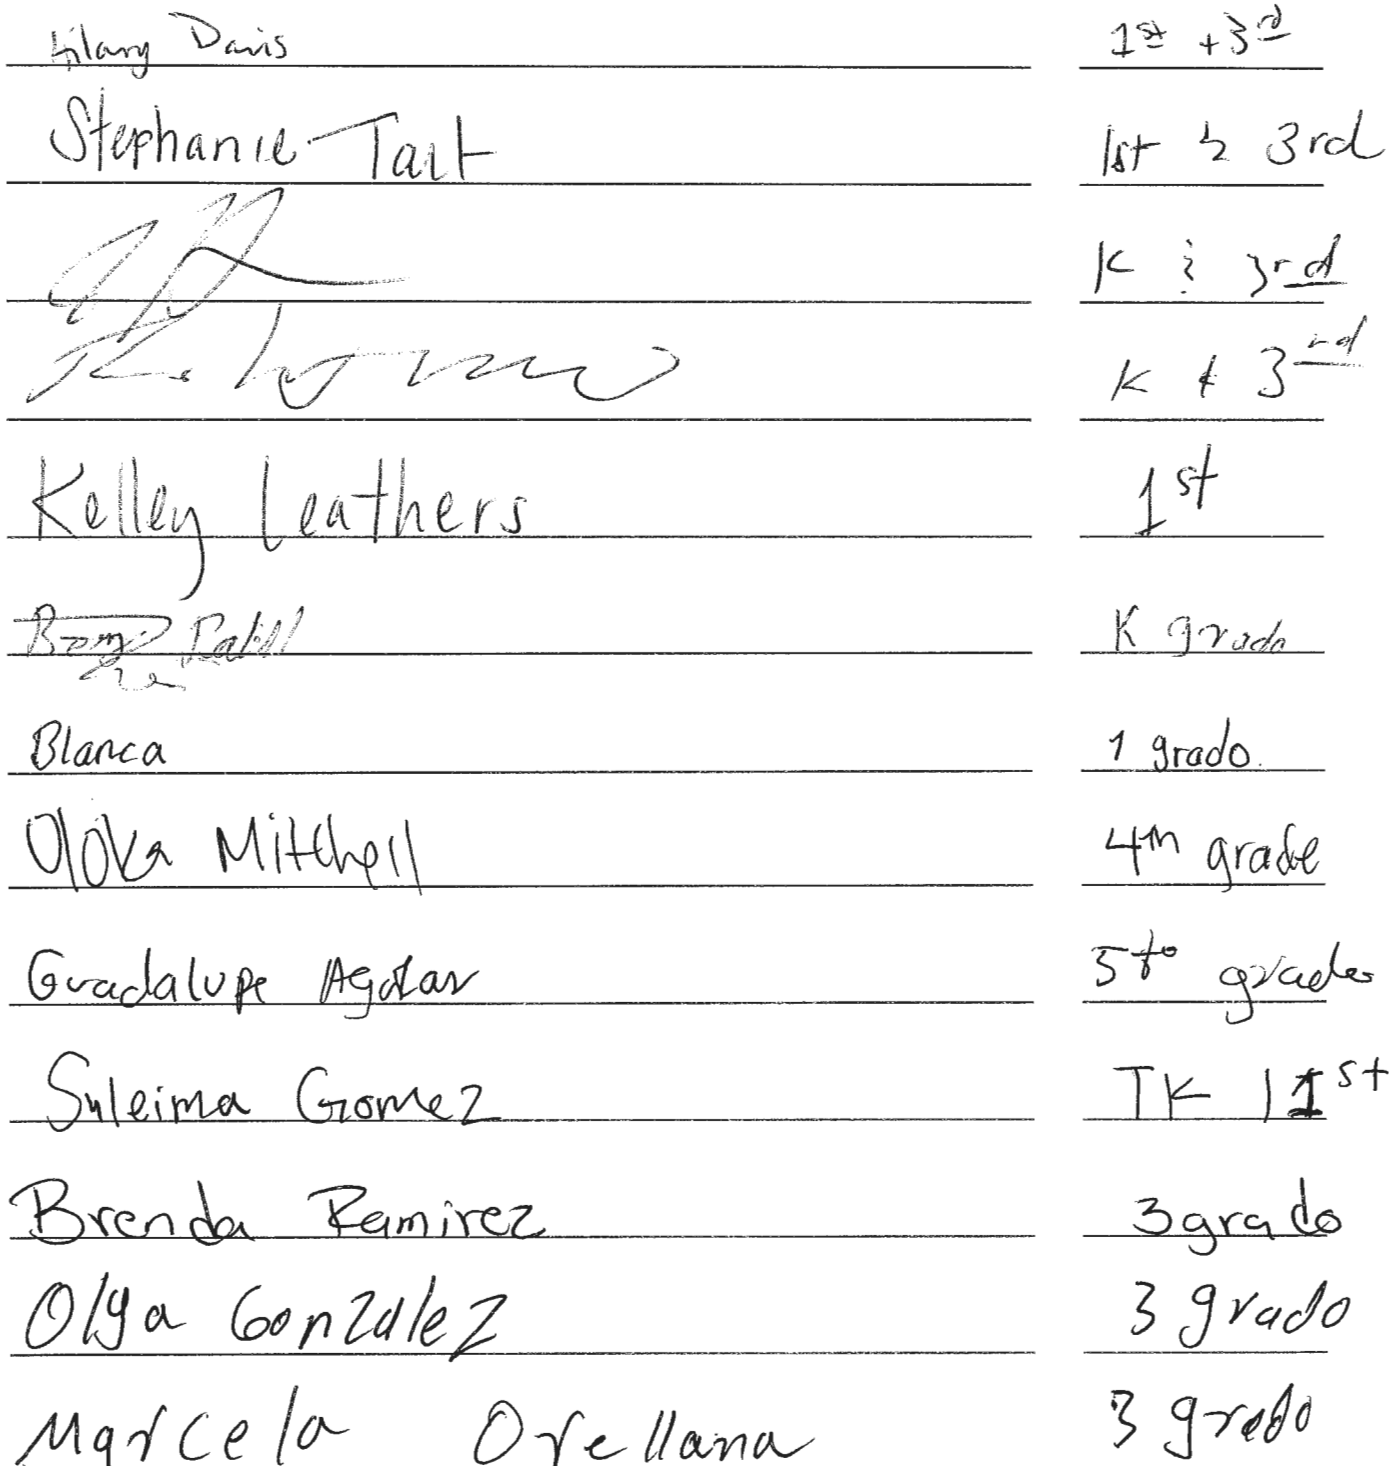 Hilary Davis 1st + 3rd
Stephanie Tait 1st & 3rd
K & 3rd
K & 3rd
Kelley Leathers 1st
K grado
Blanca 1 grado.
Mitchell 4th grade
Guadalupe 5to grado
Suleima Gomez TK / 1st
Brenda Ramirez 3 grado
Olga Gonzalez 3 grado
Marcela Orellana 3 grado